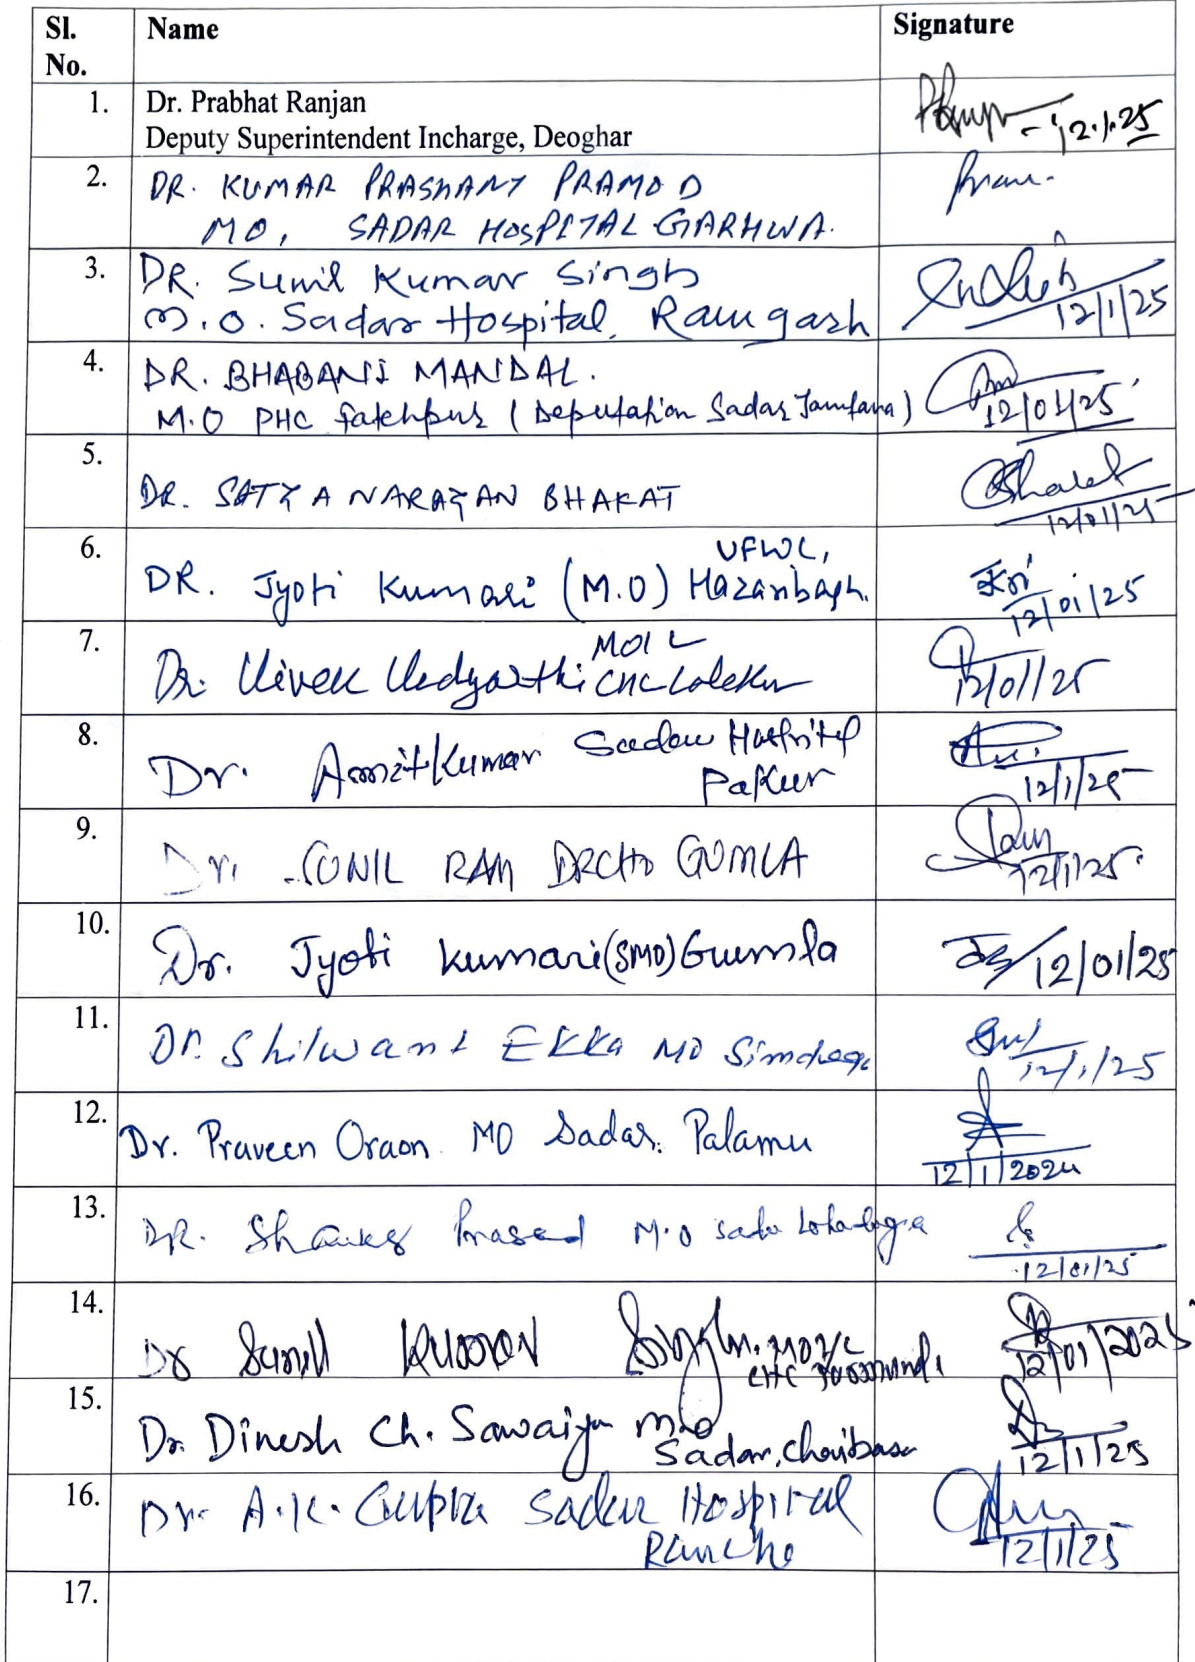 Sl. No. Name Signature
1. Dr. Prabhat Ranjan
Deputy Superintendent Incharge, Deoghar
12.1.25
2. DR. KUMAR PRASHANT PRAMOD
MO, SADAR HOSPITAL GARHWA.
3. DR. Sunil Kumar Singh
M.O. Sadar Hospital, Ramgarh
12/1/25
4. DR. BHABANI MANDAL.
M.O PHC fatehpur (Deputation Sadar Jamtara)
12/01/25
5. DR. SATYA NARAYAN BHAKAT
12/01/25
6. DR. Jyoti Kumari (M.O) UFWC, Hazaribagh.
12/01/25
7. Dr. Vivek Vidyarthi MOI CHC
12/01/25
8. Dr. Amit Kumar Sadar Hospital
Pakur
12/1/25
9. Dr. SUNIL RAM DRCHO GUMLA
12/1/25
10. Dr. Jyoti Kumari (SMO) Gumla
12/01/25
11. Dr. Shilwant EKKA MO Simdega
12/1/25
12. Dr. Praveen Oraon MO Sadar, Palamu
12/1/2024
13. DR. Prasad M.O Sadar Lohardaga
12/01/25
14. Dr Sunil Kumar Singh. MO I/C
CHC
12/01/2025
15. Dr. Dinesh Ch. Sawaiya M.O
Sadar, Chaibasa
12/1/25
16. Dr. A.K. Gupta Sadar Hospital
Ranchi
12/1/25
17.